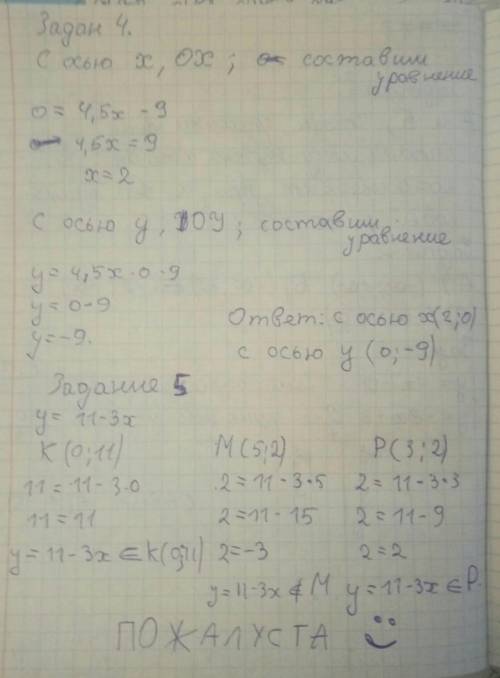 Задан 4.
С осью x, OX; составим
уравнение
0 = 4,5x - 9
4,5x = 9
x = 2
С осью y, OY; составим
уравнение
y = 4,5x · 0 - 9
y = 0 - 9
y = -9.
Ответ: с осью x(2;0)
с осью y (0; -9)
Задание 5
y = 11 - 3x
K (0;11) M (5;2) P (3;2)
11 = 11 - 3·0 2 = 11 - 3·5 2 = 11 - 3·3
11 = 11 2 = 11 - 15 2 = 11 - 9
y = 11 - 3x ∈ K(0;11) 2 = -3 2 = 2
y = 11-3x ∉ M y = 11-3x ∈ P.
ПОЖАЛУСТА